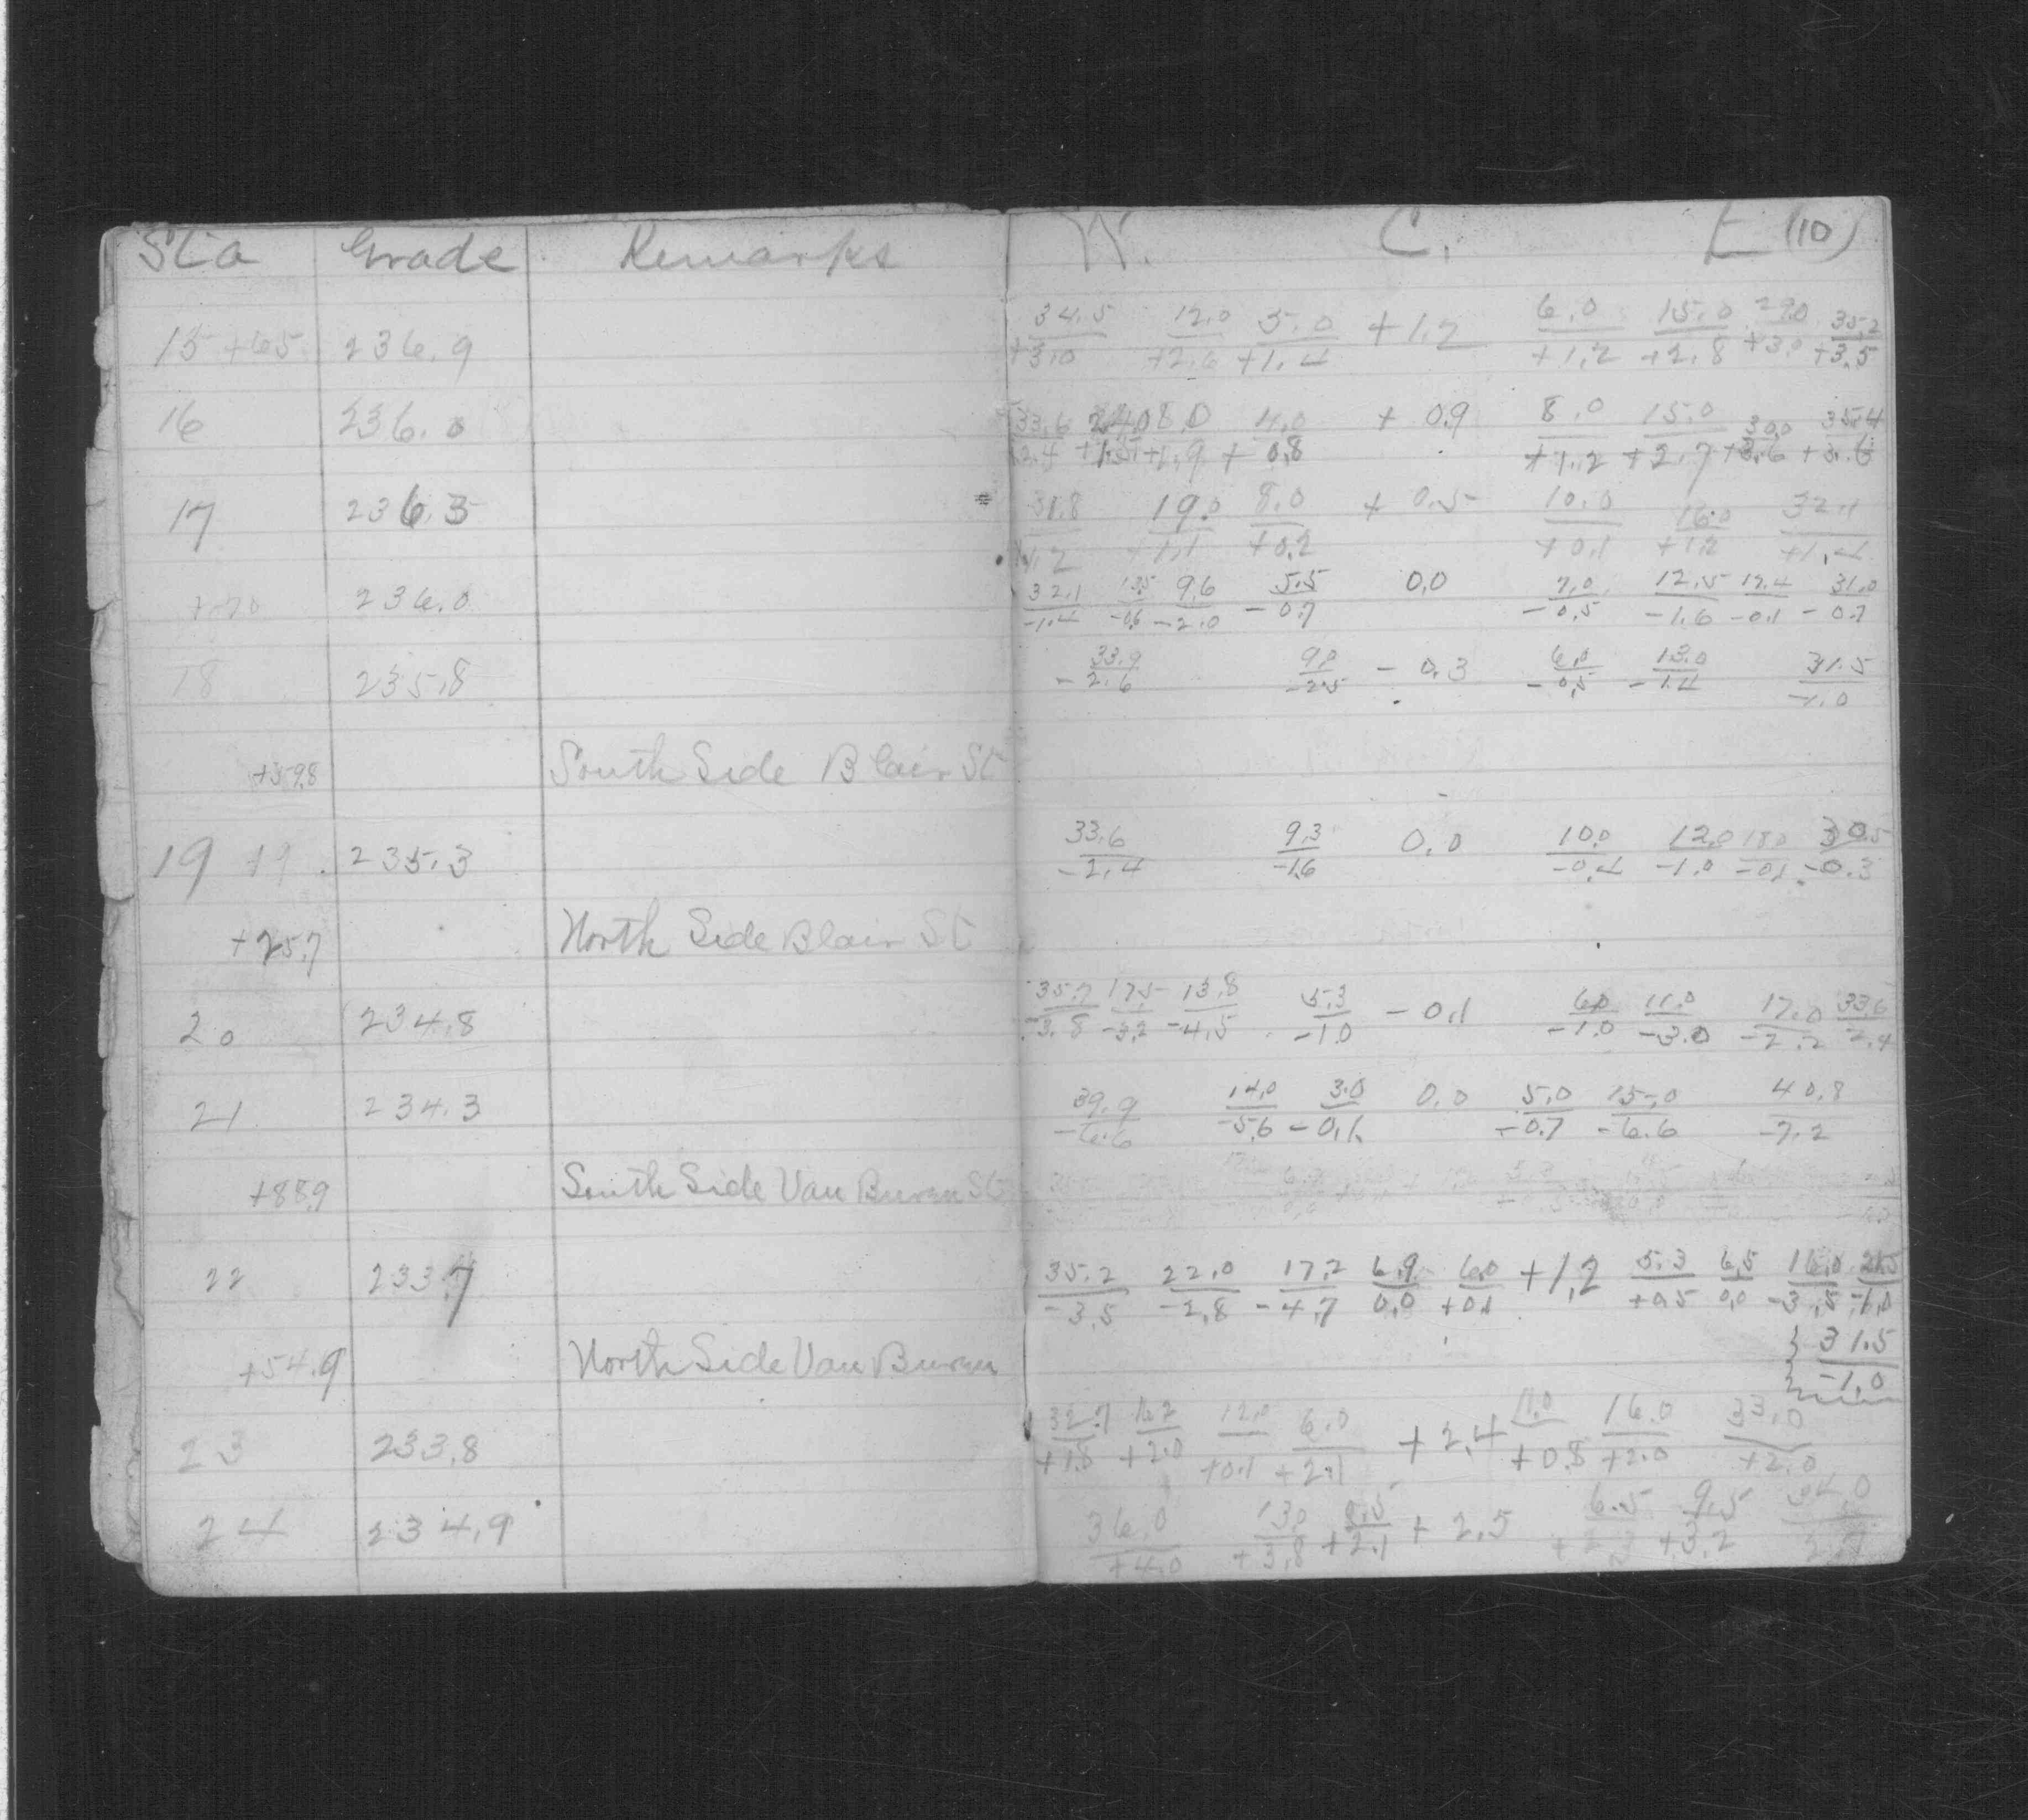 Sta Grade Remarks W. C. E (10)
15+65 236.9 34.5/+3.0 12.0/+2.6 5.0/+1.4 +1.2 6.0/+1.2 15.0/+2.8 29.0/+3.0 35.2/+3.5
16 236.0 33.6/2.4 24.0/+1.5 8.0/+1.9 4.0/+0.8 +0.9 8.0/+1.2 15.0/+2.7 30.0/+3.6 35.4/+3.6
17 236.3 31.8/1.2 19.0/+1.1 8.0/+0.2 +0.5 10.0/+0.1 16.0/+1.2 32.1/+1.4
+70 236.0 32.1/-1.4 13.5/-0.6 9.6/-2.0 5.5/-0.7 0.0 7.0/-0.5 12.5/-1.6 17.4/-0.1 31.0/-0.7
18 235.8 33.9/-2.6 9.0/-2.5 -0.3 6.0/-0.5 13.0/-1.4 31.5/-1.0
+59.8 South Side Blair St
19 19 235.3 33.6/-2.4 9.3/-1.6 0.0 10.0/-0.4 12.0/-1.0 18.0/-0.1 30.5/-0.3
+25.7 North Side Blair St
20 234.8 35.7/-3.8 17.5/-3.2 13.8/-4.5 5.3/-1.0 -0.1 6.0/-1.0 11.0/-3.0 17.0/-2.2 33.6/-2.4
21 234.3 39.9/-6.6 14.0/-5.6 3.0/-0.1 0.0 5.0/-0.7 15.0/-6.6 40.8/-7.2
+88.9 South Side Van Buren St
22 233.7 35.2/-3.5 22.0/-2.8 17.2/-4.7 6.9/0.0 6.0/+0.1 +1.2 5.3/+0.5 6.5/0.0 16.0/-3.5 21.5/-1.0
31.5/-1.0
+54.9 North Side Van Buren
23 233.8 32.7/+1.8 16.2/+2.0 12.0/+0.1 6.0/+2.1 +2.4 11.0/+0.8 16.0/+2.0 33.0/+2.0
24 234.9 36.0/+4.0 13.0/+3.8 8.5/+2.1 +2.5 6.5/+2.3 9.5/+3.2 34.0